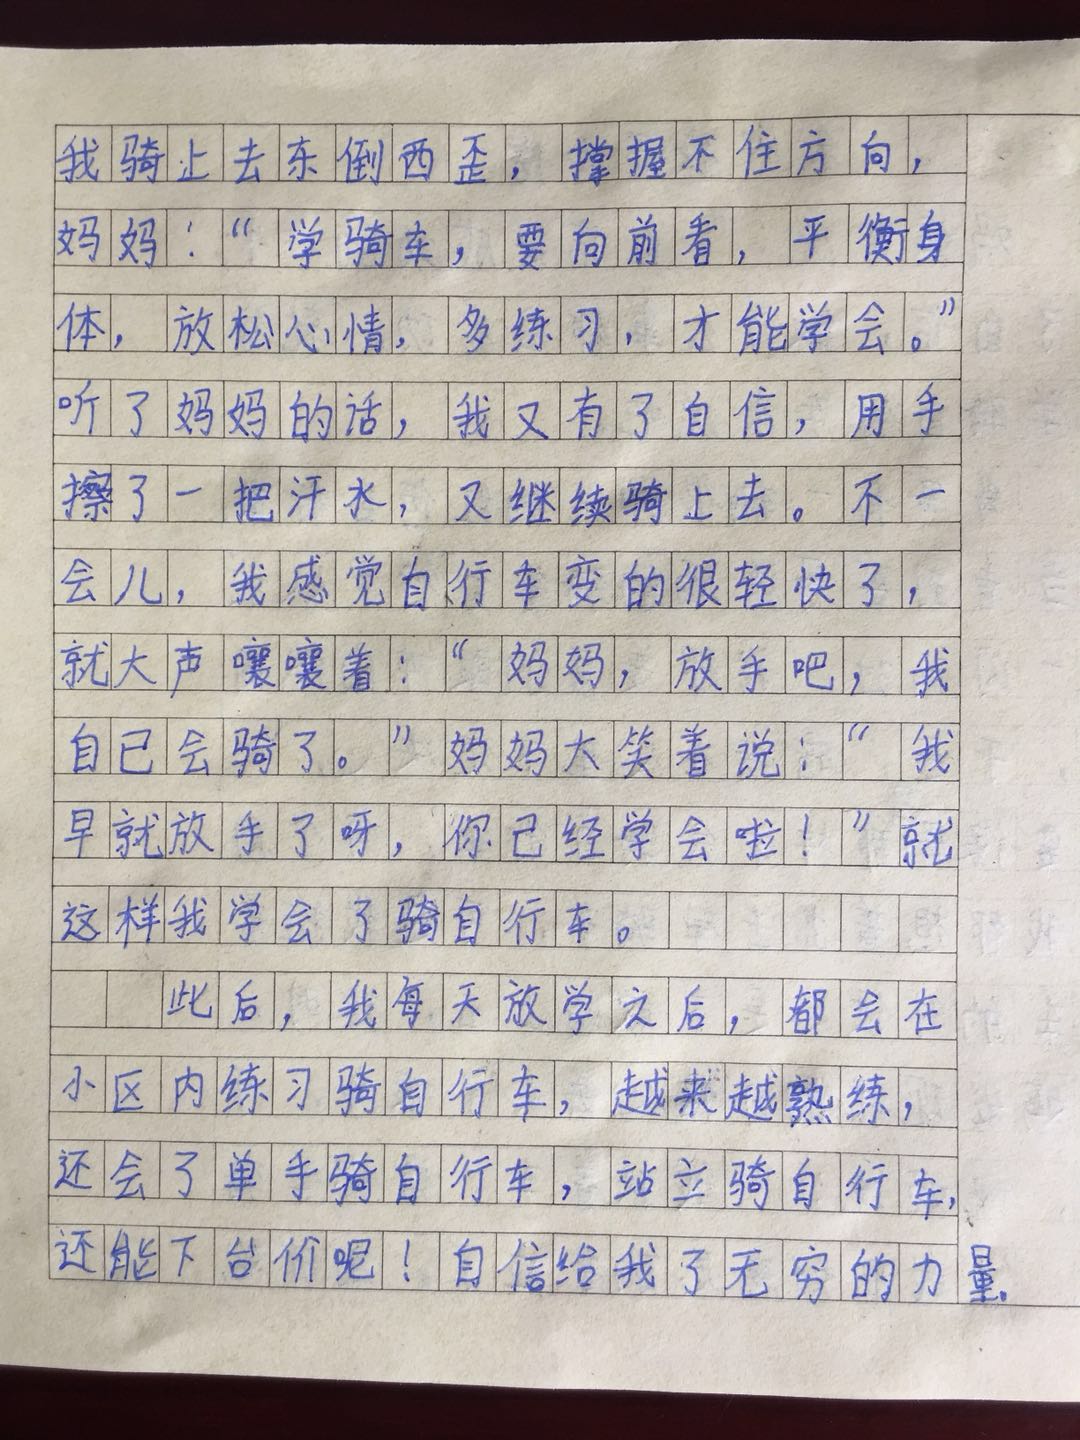 我骑上去东倒西歪，撑握不住方向，
妈妈：“学骑车，要向前看，平衡身
体，放松心情，多练习，才能学会。”
听了妈妈的话，我又有了自信，用手
擦了一把汗水，又继续骑上去。不一
会儿，我感觉自行车变的很轻快了，
就大声嚷嚷着：“妈妈，放手吧，我
自己会骑了。”妈妈大笑着说：“我
早就放手了呀，你已经学会啦！”就
这样我学会了骑自行车。
此后，我每天放学之后，都会在
小区内练习骑自行车，越来越熟练，
还会了单手骑自行车，站立骑自行车，
还能下台价呢！自信给我了无穷的力量。